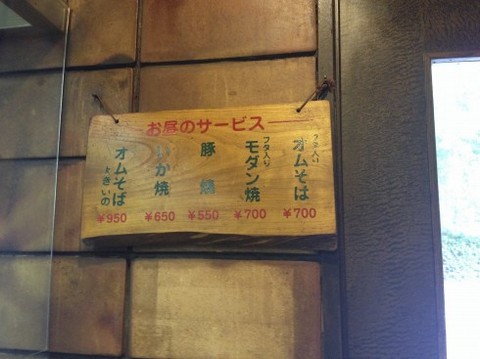 お昼のサービス
ブタ入り
オムそば
¥700
ブタ入り
モダン焼
¥700
豚焼
¥550
いか焼
¥650
オムそば
¥950